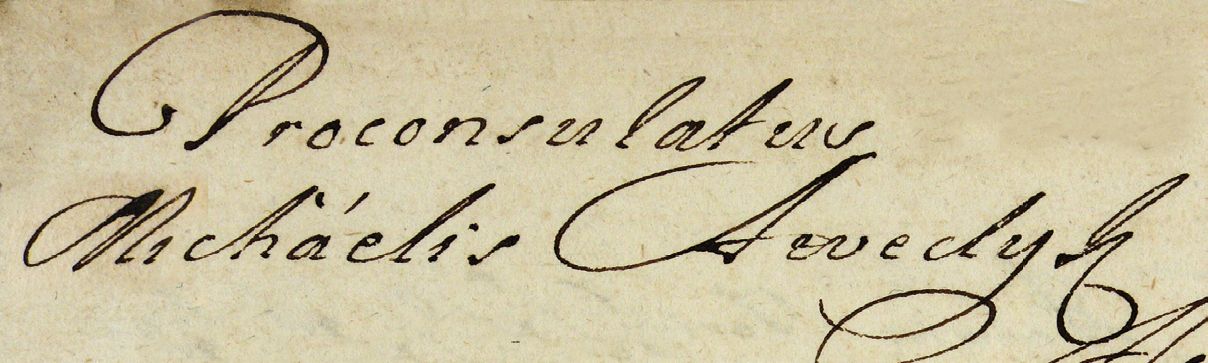 Proconsulatus
Michäélis Arvedÿ